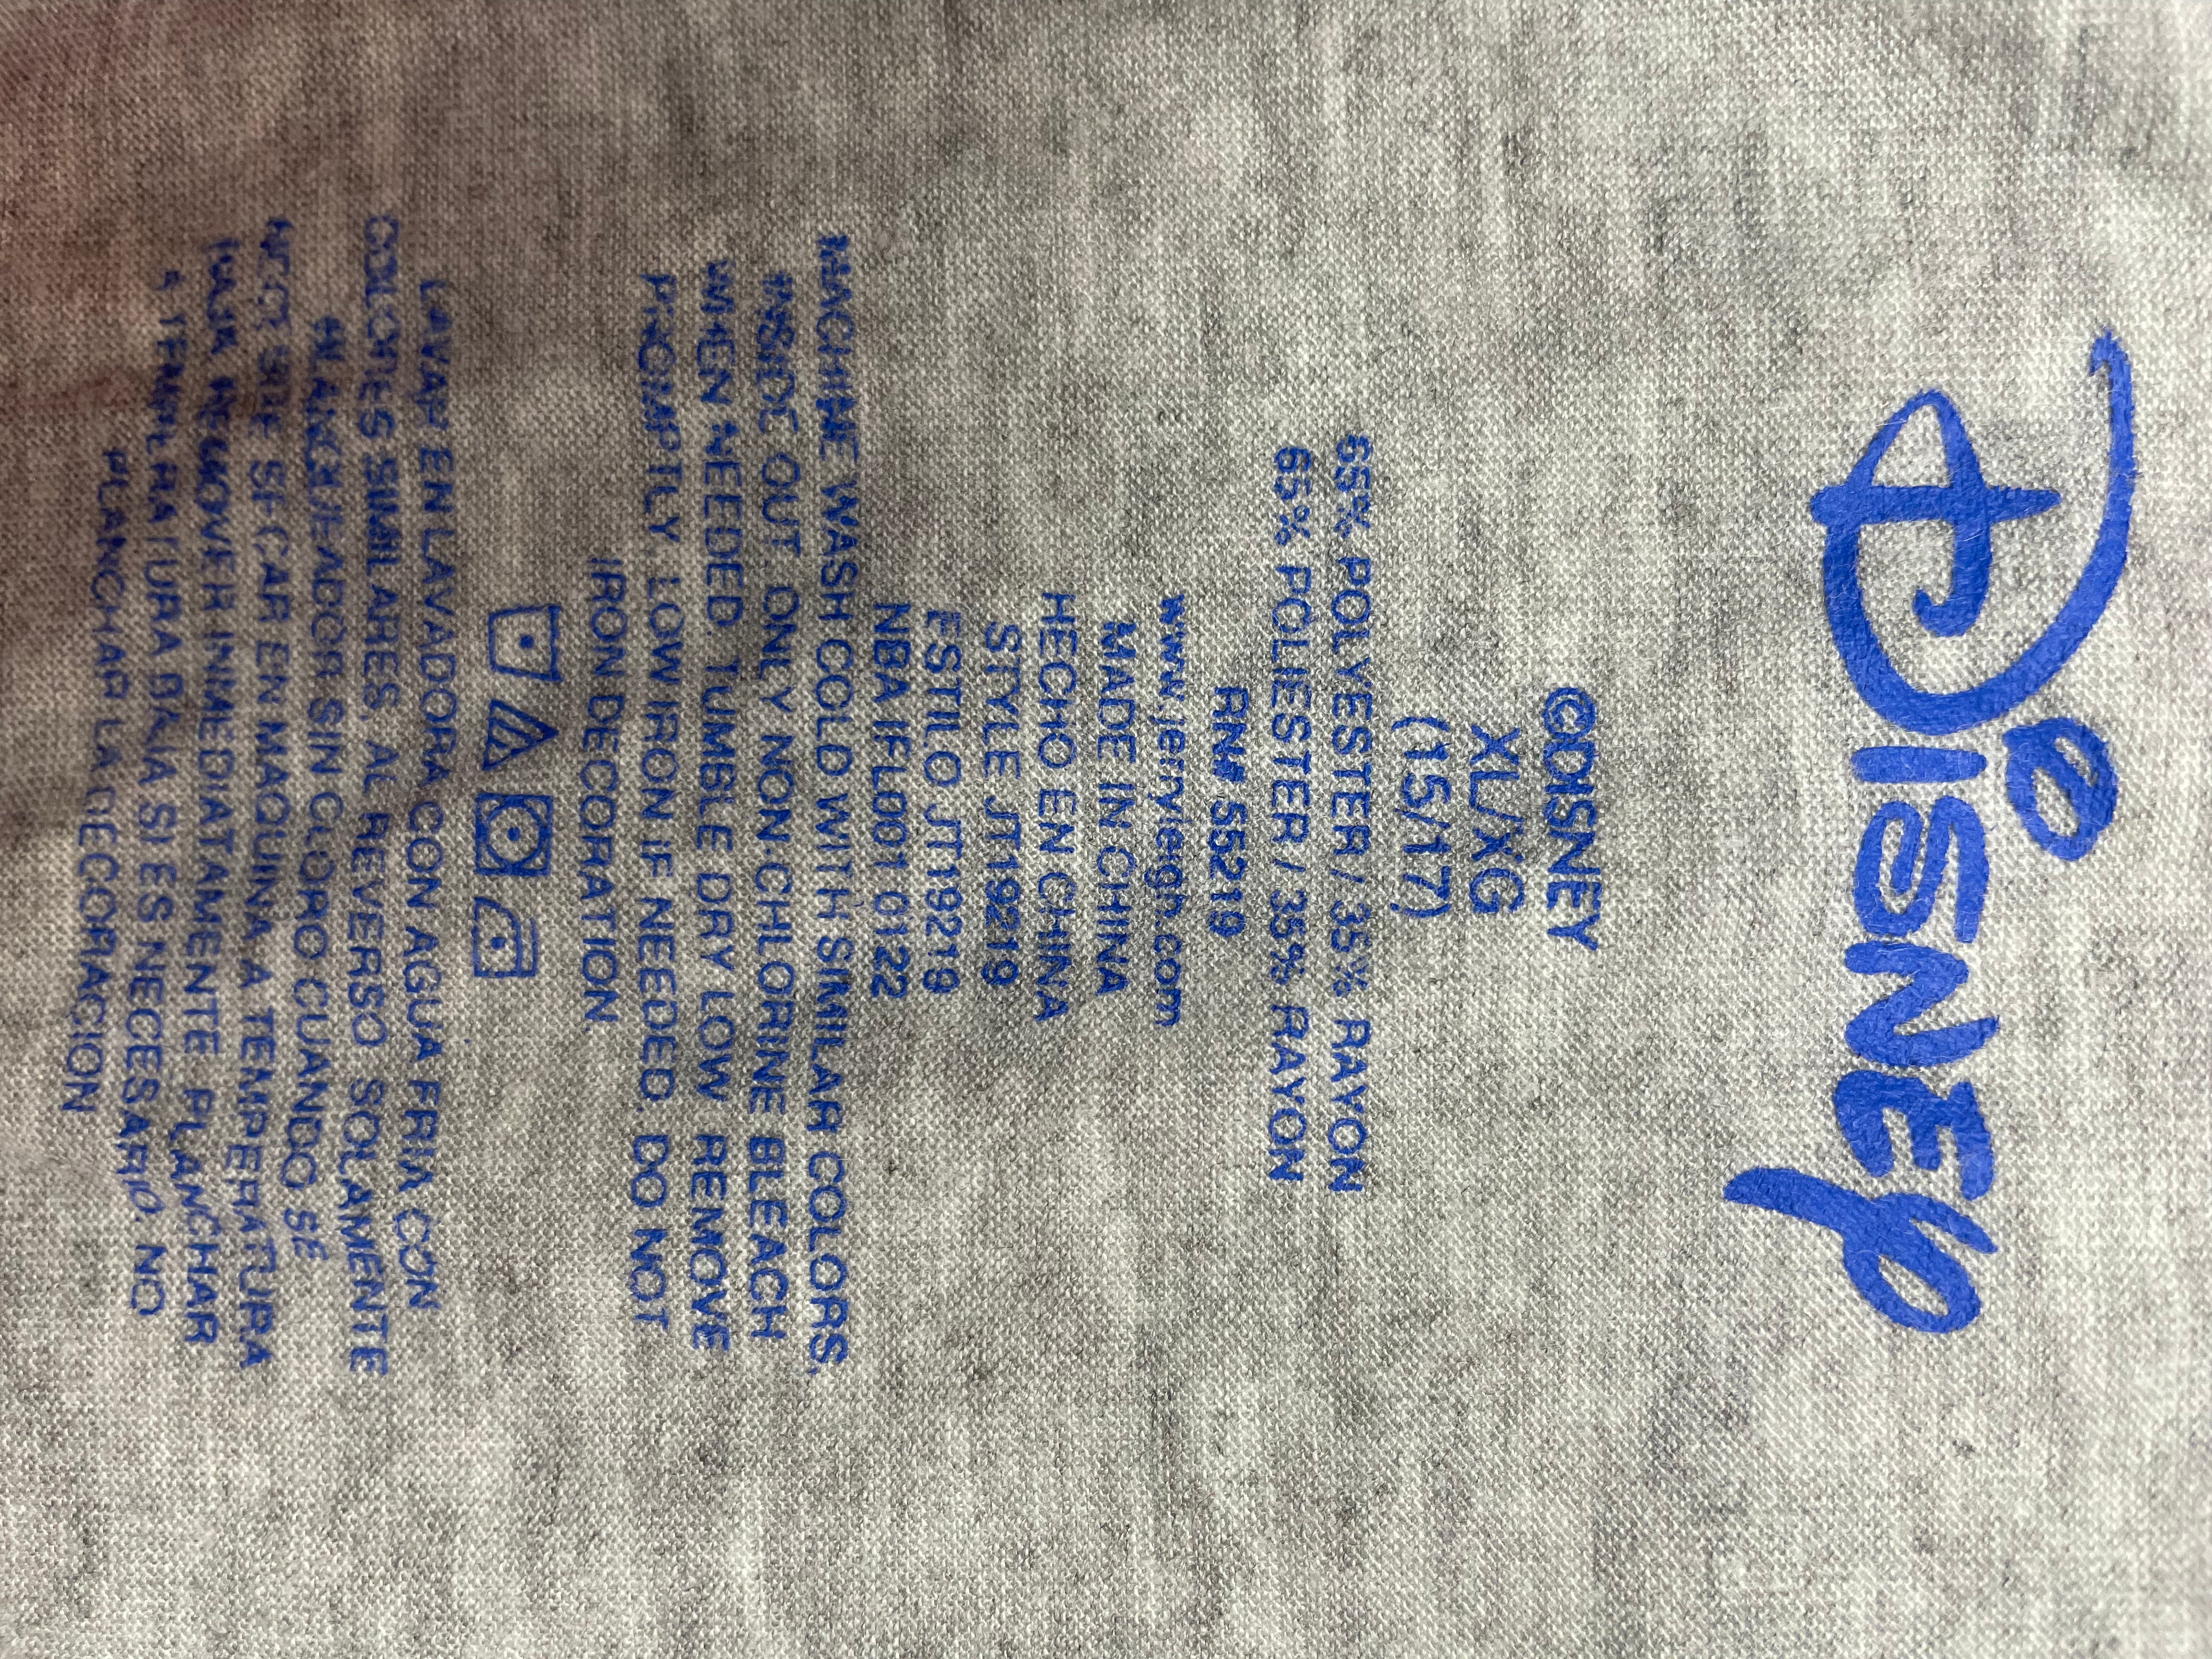 Disney
©DISNEY
XL/XG
(15/17)
65% POLYESTER / 35% RAYON
65% POLIESTER / 35% RAYON
RN# 55219
www.jerryleigh.com
MADE IN CHINA
HECHO EN CHINA
STYLE JT19219
ESTILO JT19219
NBA IFL001 0122
MACHINE WASH COLD WITH SIMILAR COLORS,
INSIDE OUT. ONLY NON-CHLORINE BLEACH
WHEN NEEDED. TUMBLE DRY LOW. REMOVE
PROMPTLY. LOW IRON IF NEEDED. DO NOT
IRON DECORATION.
LAVAR EN LAVADORA CON AGUA FRIA CON
COLORES SIMILARES, AL REVERSO. SOLAMENTE
BLANQUEADOR SIN CLORO CUANDO SE
NECESITE. SECAR EN MAQUINA A TEMPERATURA
BAJA. REMOVER INMEDIATAMENTE. PLANCHAR
A TEMPERATURA BAJA SI ES NECESARIO. NO
PLANCHAR LA DECORACION